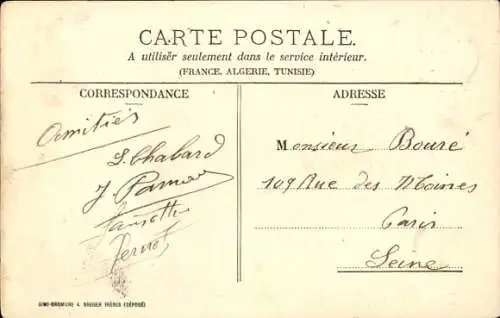 CARTE POSTALE.
A utiliser seulement dans le service intérieur.
(FRANCE, ALGERIE, TUNISIE)
CORRESPONDANCE
Amitiés
S. Chabard
J.
ADRESSE
Monsieur Bouré
109 Rue des Moines
Paris
Seine
BREGER FRÈRES (DÉPOSÉ)